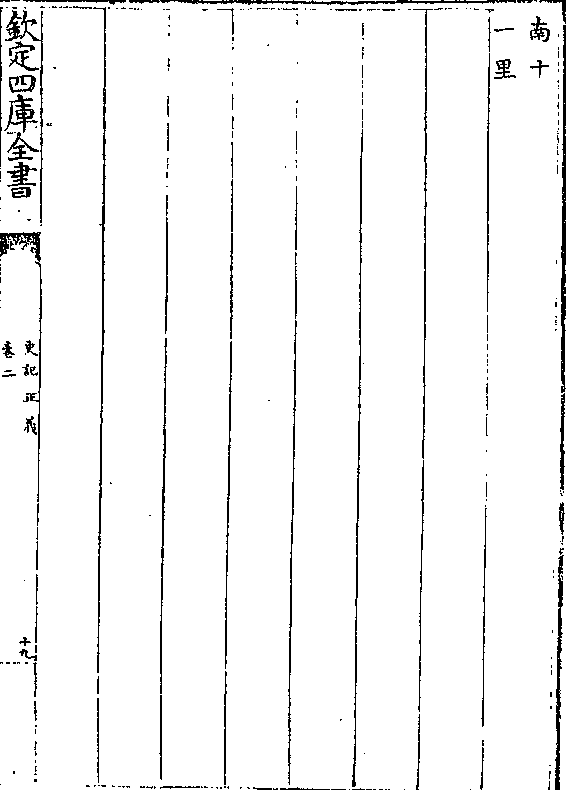 南十
一里
欽定四庫全書
史記正義
卷二
十九